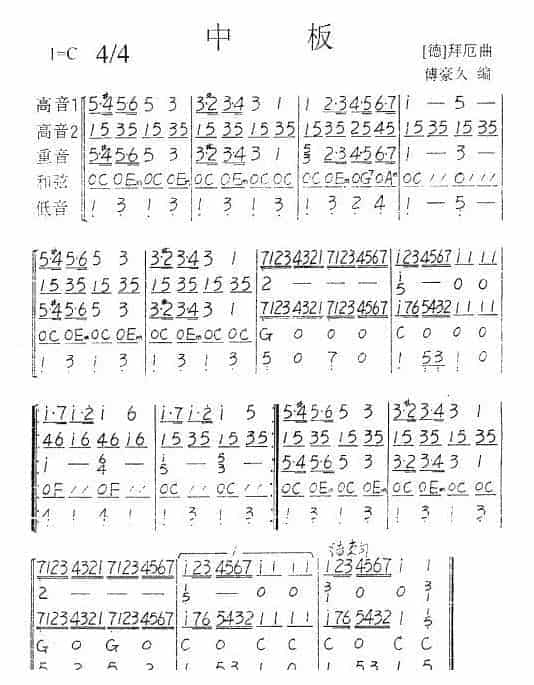 中 板
1=C 4/4 [德]拜厄曲
傅豪久 编
高音1 5·#4 5 6 5 3 | 3·#2 3·4 3 1 | 1 2·3 4·5 6·7 | i — 5 —
高音2 15 35 15 35 | 15 35 15 35 | 15 35 25 45 | 15 35 15 35
重音 5·#4 5 6 5 3 | 3·#2 3·4 3 1 | 2·3 4·5 6·7 | 1 — 3 —
和弦 0C 0Em 0C 0Em | 0C 0C 0C 0C | 0C 0Em 0G7 | 0C // 0 //
低音 1 3 1 3 | 1 3 1 3 | 1 3 2 4 | 1 — 5 —
5·#4 5·6 5 3 | 3·#2 3·4 3 1 | 7123 4321 7123 4567 | i 23 4567 i i i i
15 35 15 35 | 15 35 15 35 | 2 — — — | i 5 — 0 0
5·#4 5·6 5 3 | 3·#2 3·4 3 1 | 7123 4321 7123 4567 | i 76 5432 1 1 1 1
0C 0Em 0C 0Em | 0C 0C 0C 0C | G 0 0 0 | C 0 0 0
1 3 i 3 | 1 3 1 3 | 5 0 7 0 | 1 53 1 0
i·7 i·2 i 6 | i·7 i·2 i 5 | 5·#4 5·6 5 3 | 3·#2 3·4 3 1
46 i6 46 i6 | 15 35 15 35 | 15 35 15 35 | 15 35 15 35
i — 6 4 — | i 5 — — | 5·#4 5·6 5 3 | 3·#2 3·4 3 1
0F // 0F // | 0C // 0C // | 0C 0Em 0C 0Em | 0C 0C 0C 0C
4 1 4 1 | 1 3 1 3 | 1 3 1 3 | 1 3 1 3
1 结束句
7123 4321 7123 4567 | i 23 4567 i i i i | i 23 4567 i 1
2 — — — | i 5 — 0 0 | 3 1 0 0 3 1
7123 4321 7123 4567 | i 76 5432 1 1 1 1 | i 76 5432 1 i 5
G 0 G 0 | C 0 C 0 | C 0 C C
5 2 5 2 | 1 53 1 0 | 1 53 1 1